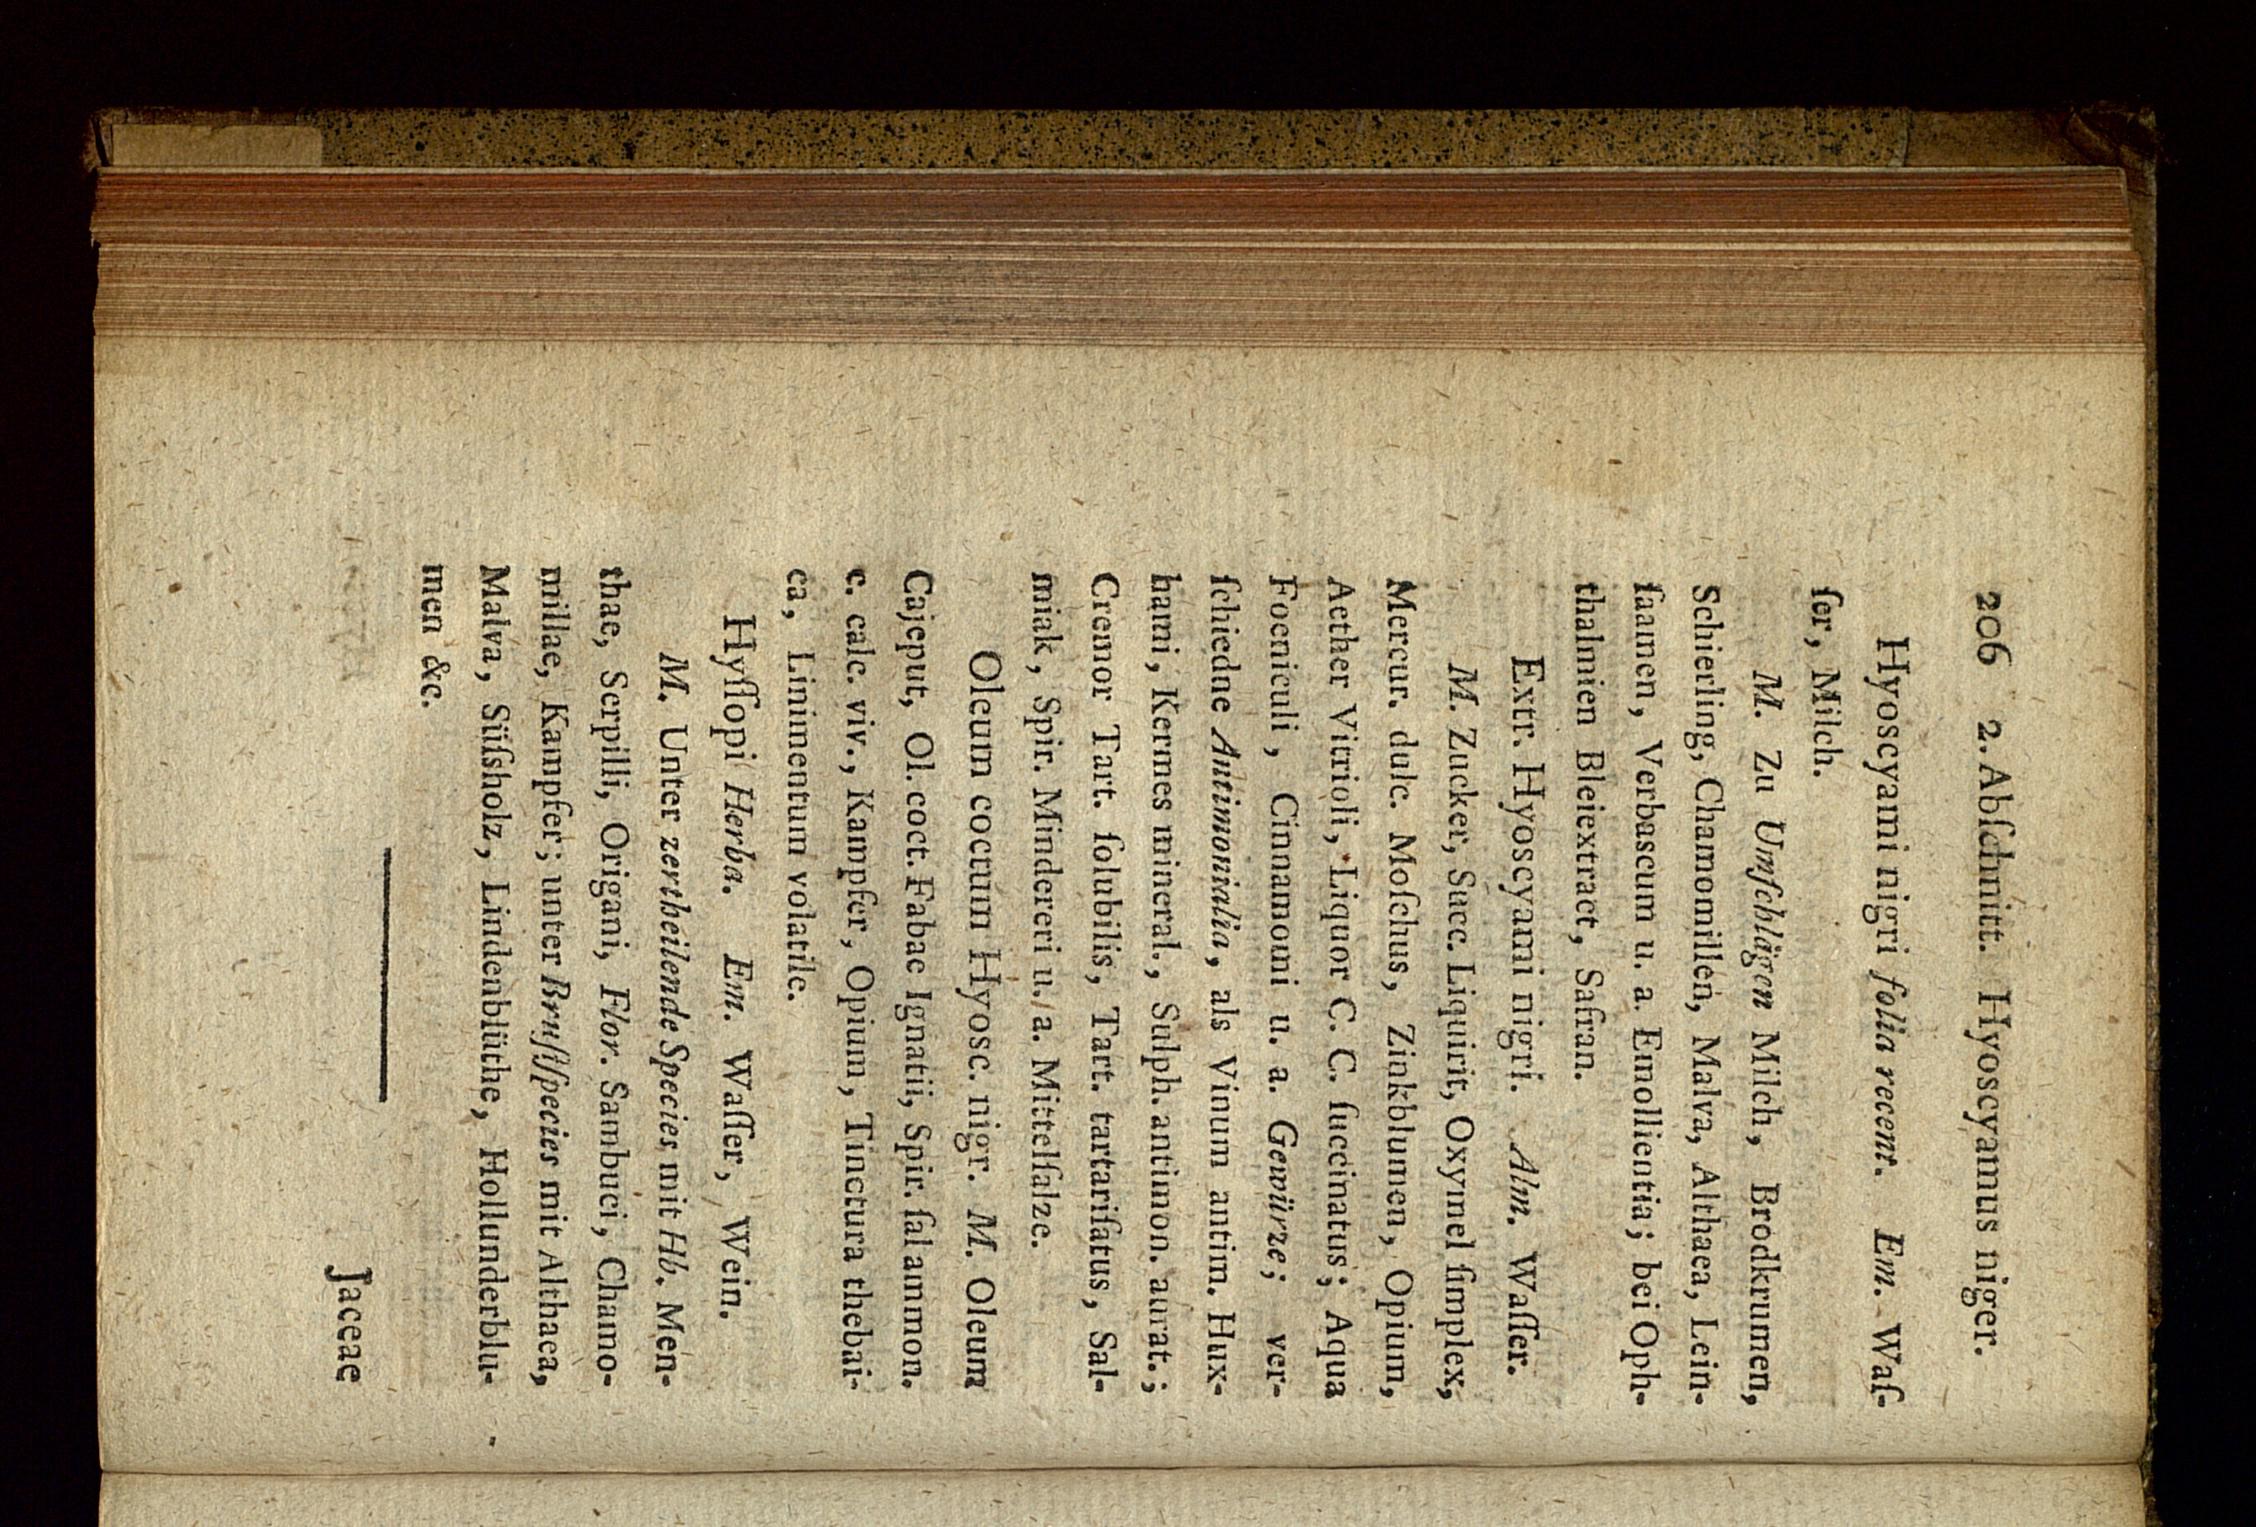 206 2. Abſchnitt. Hyoscyamus niger.
Hyoscyami nigri folia recent. Em. Waſ-
ſer, Milch.
M. Zu Umſchlägen Milch, Brodkrumen,
Schierling, Chamomillen, Malva, Althaea, Lein-
ſaamen, Verbascum u. a. Emollientia; bei Oph-
thalmien Bleiextract, Safran.
Extr. Hyoscyami nigri. Alm. Waſſer.
M. Zucker, Succ. Liquirit, Oxymel ſimplex,
Mercur. dulc. Moſchus, Zinkblumen, Opium,
Aether Vitrioli, Liquor C. C. ſuccinatus; Aqua
Foeniculi, Cinnamomi u. a. Gewürze; ver-
ſchiedne Antimonialia, als Vinum antim. Hux-
hami, Kermes mineral., Sulph. antimon. aurat.;
Cremor Tart. ſolubilis, Tart. tartariſatus, Sal-
miak, Spir. Mindereri u. a. Mittelſalze.
Oleum coctum Hyosc. nigr. M. Oleum
Cajeput, Ol. coct. Fabae Ignatii, Spir. ſal ammon.
c. calc. viv., Kampfer, Opium, Tinctura thebai-
ca, Linimentum volatile.
Hyſſopi Herba. Em. Waſſer, Wein.
M. Unter zertheilende Species mit Hb. Men-
thae, Serpilli, Origani, Flor. Sambuci, Chamo-
millae, Kampfer; unter Bruſtſpecies mit Althaea,
Malva, Süſsholz, Lindenblüthe, Hollunderblu-
men &c.
Jaceae